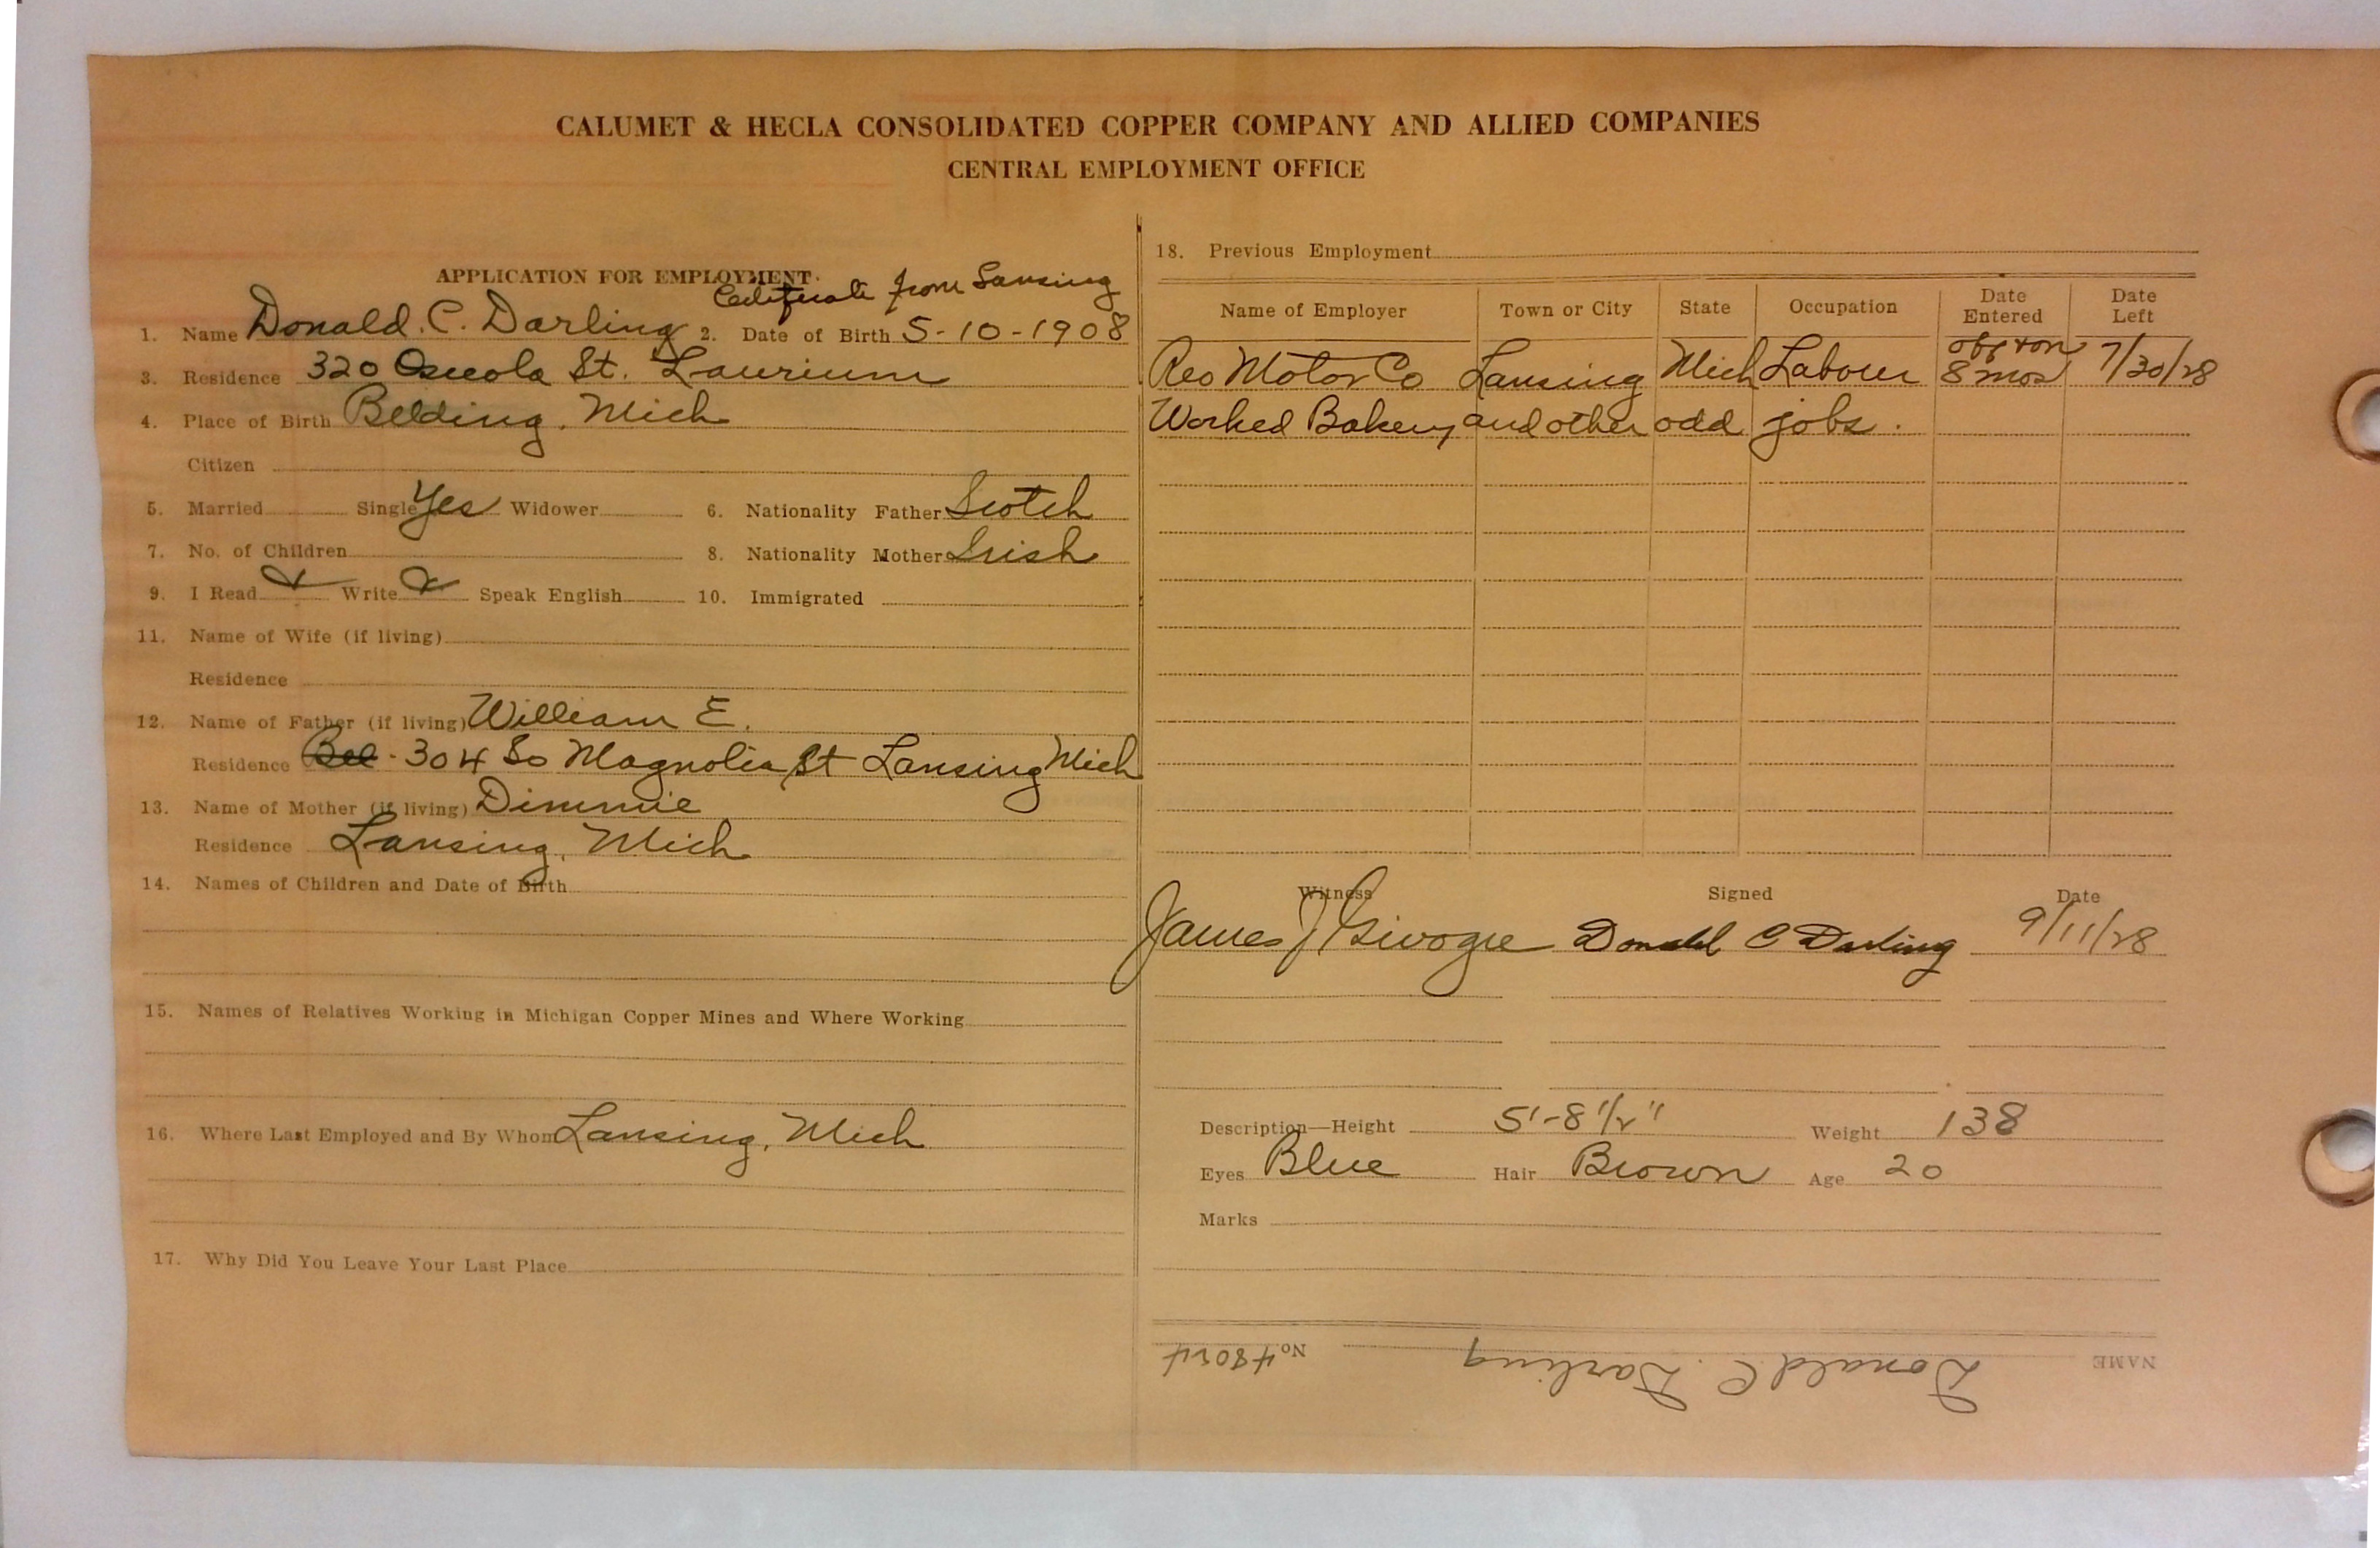 CALUMET & HECLA CONSOLIDATED COPPER COMPANY AND ALLIED COMPANIES
CENTRAL EMPLOYMENT OFFICE
APPLICATION FOR EMPLOYMENT
Certificate from Lansing
1. Name Donald. C. Darling 2. Date of Birth 5-10-1908
3. Residence 320 Osceola St. Laurium
4. Place of Birth Belding, Mich
Citizen
5. Married Single Yes Widower 6. Nationality Father Scotch
7. No. of Children 8. Nationality Mother Irish
9. I Read Write Speak English 10. Immigrated
11. Name of Wife (if living)
Residence
12. Name of Father (if living) William E.
Residence Bel - 304 So Magnolia St Lansing Mich
13. Name of Mother (if living) Dimmie
Residence Lansing, Mich
14. Names of Children and Date of Birth
15. Names of Relatives Working in Michigan Copper Mines and Where Working
16. Where Last Employed and By Whom Lansing, Mich
17. Why Did You Leave Your Last Place
18. Previous Employment
Name of Employer Town or City State Occupation Date Entered Date Left
Reo Motor Co Lansing Mich Labour off & on 8 mos 7/30/28
Worked Bakery and other odd jobs.
Witness Signed Date
James J Donald C Darling 9/11/28
Description—Height 5'-8 1/2" Weight 138
Eyes Blue Hair Brown Age 20
Marks
NAME Donald C. Darling No. 48024